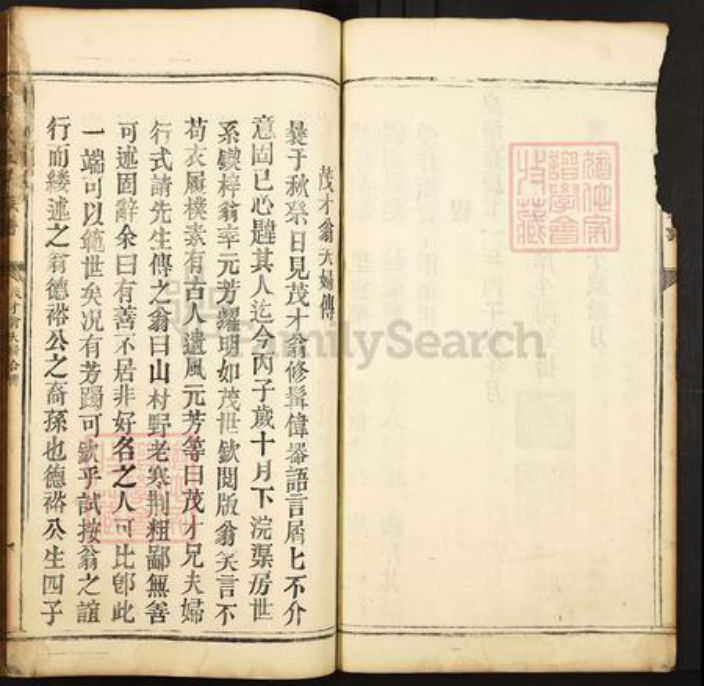 茂才翁夫婦傳
曩于秋祭日見茂才翁修髯偉器語言屑匕不介
意固已心韙其人迄今丙子歲十月下浣渠房世
系鍥梓翁率元芳耀明如茂世欽閱版翁笑言不
苟衣履樸素有古人遺風元芳等曰茂才兄夫婦
行式請先生傳之翁曰山村野老寒荆粗鄙無善
可述固辭余曰有善不居非好名之人可比卽此
一端可以範世矣况有芳躅可欽乎試按翁之誼
行而縷述之翁德裕公之裔孫也德裕公生四子
FamilySearch
譜學會